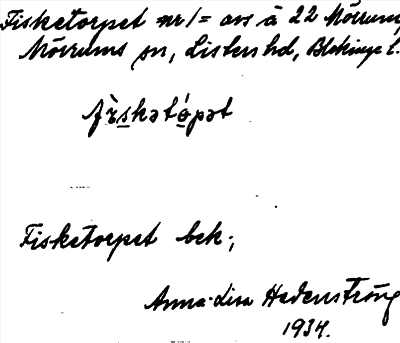 Fisketorpet nr 1 = avs å 22 Mörrum,
Mörrums sn, Listers hd, Blekinge l.
fìskətǻpət
Fisketorpet bek.,
Anna-Lisa Hedenström
1934.